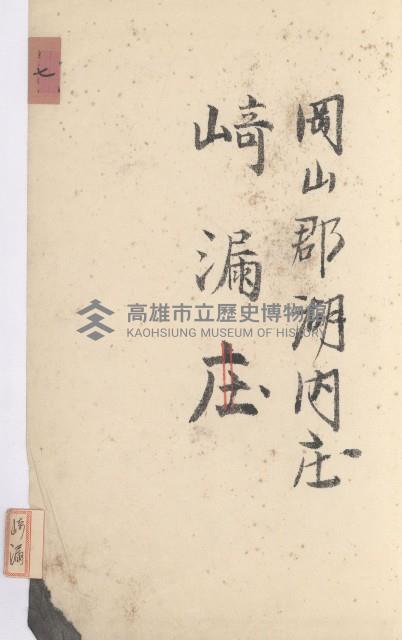 岡山郡湖内庄
崎漏庄
七
崎漏
高雄市立歷史博物館
KAOHSIUNG MUSEUM OF HISTORY